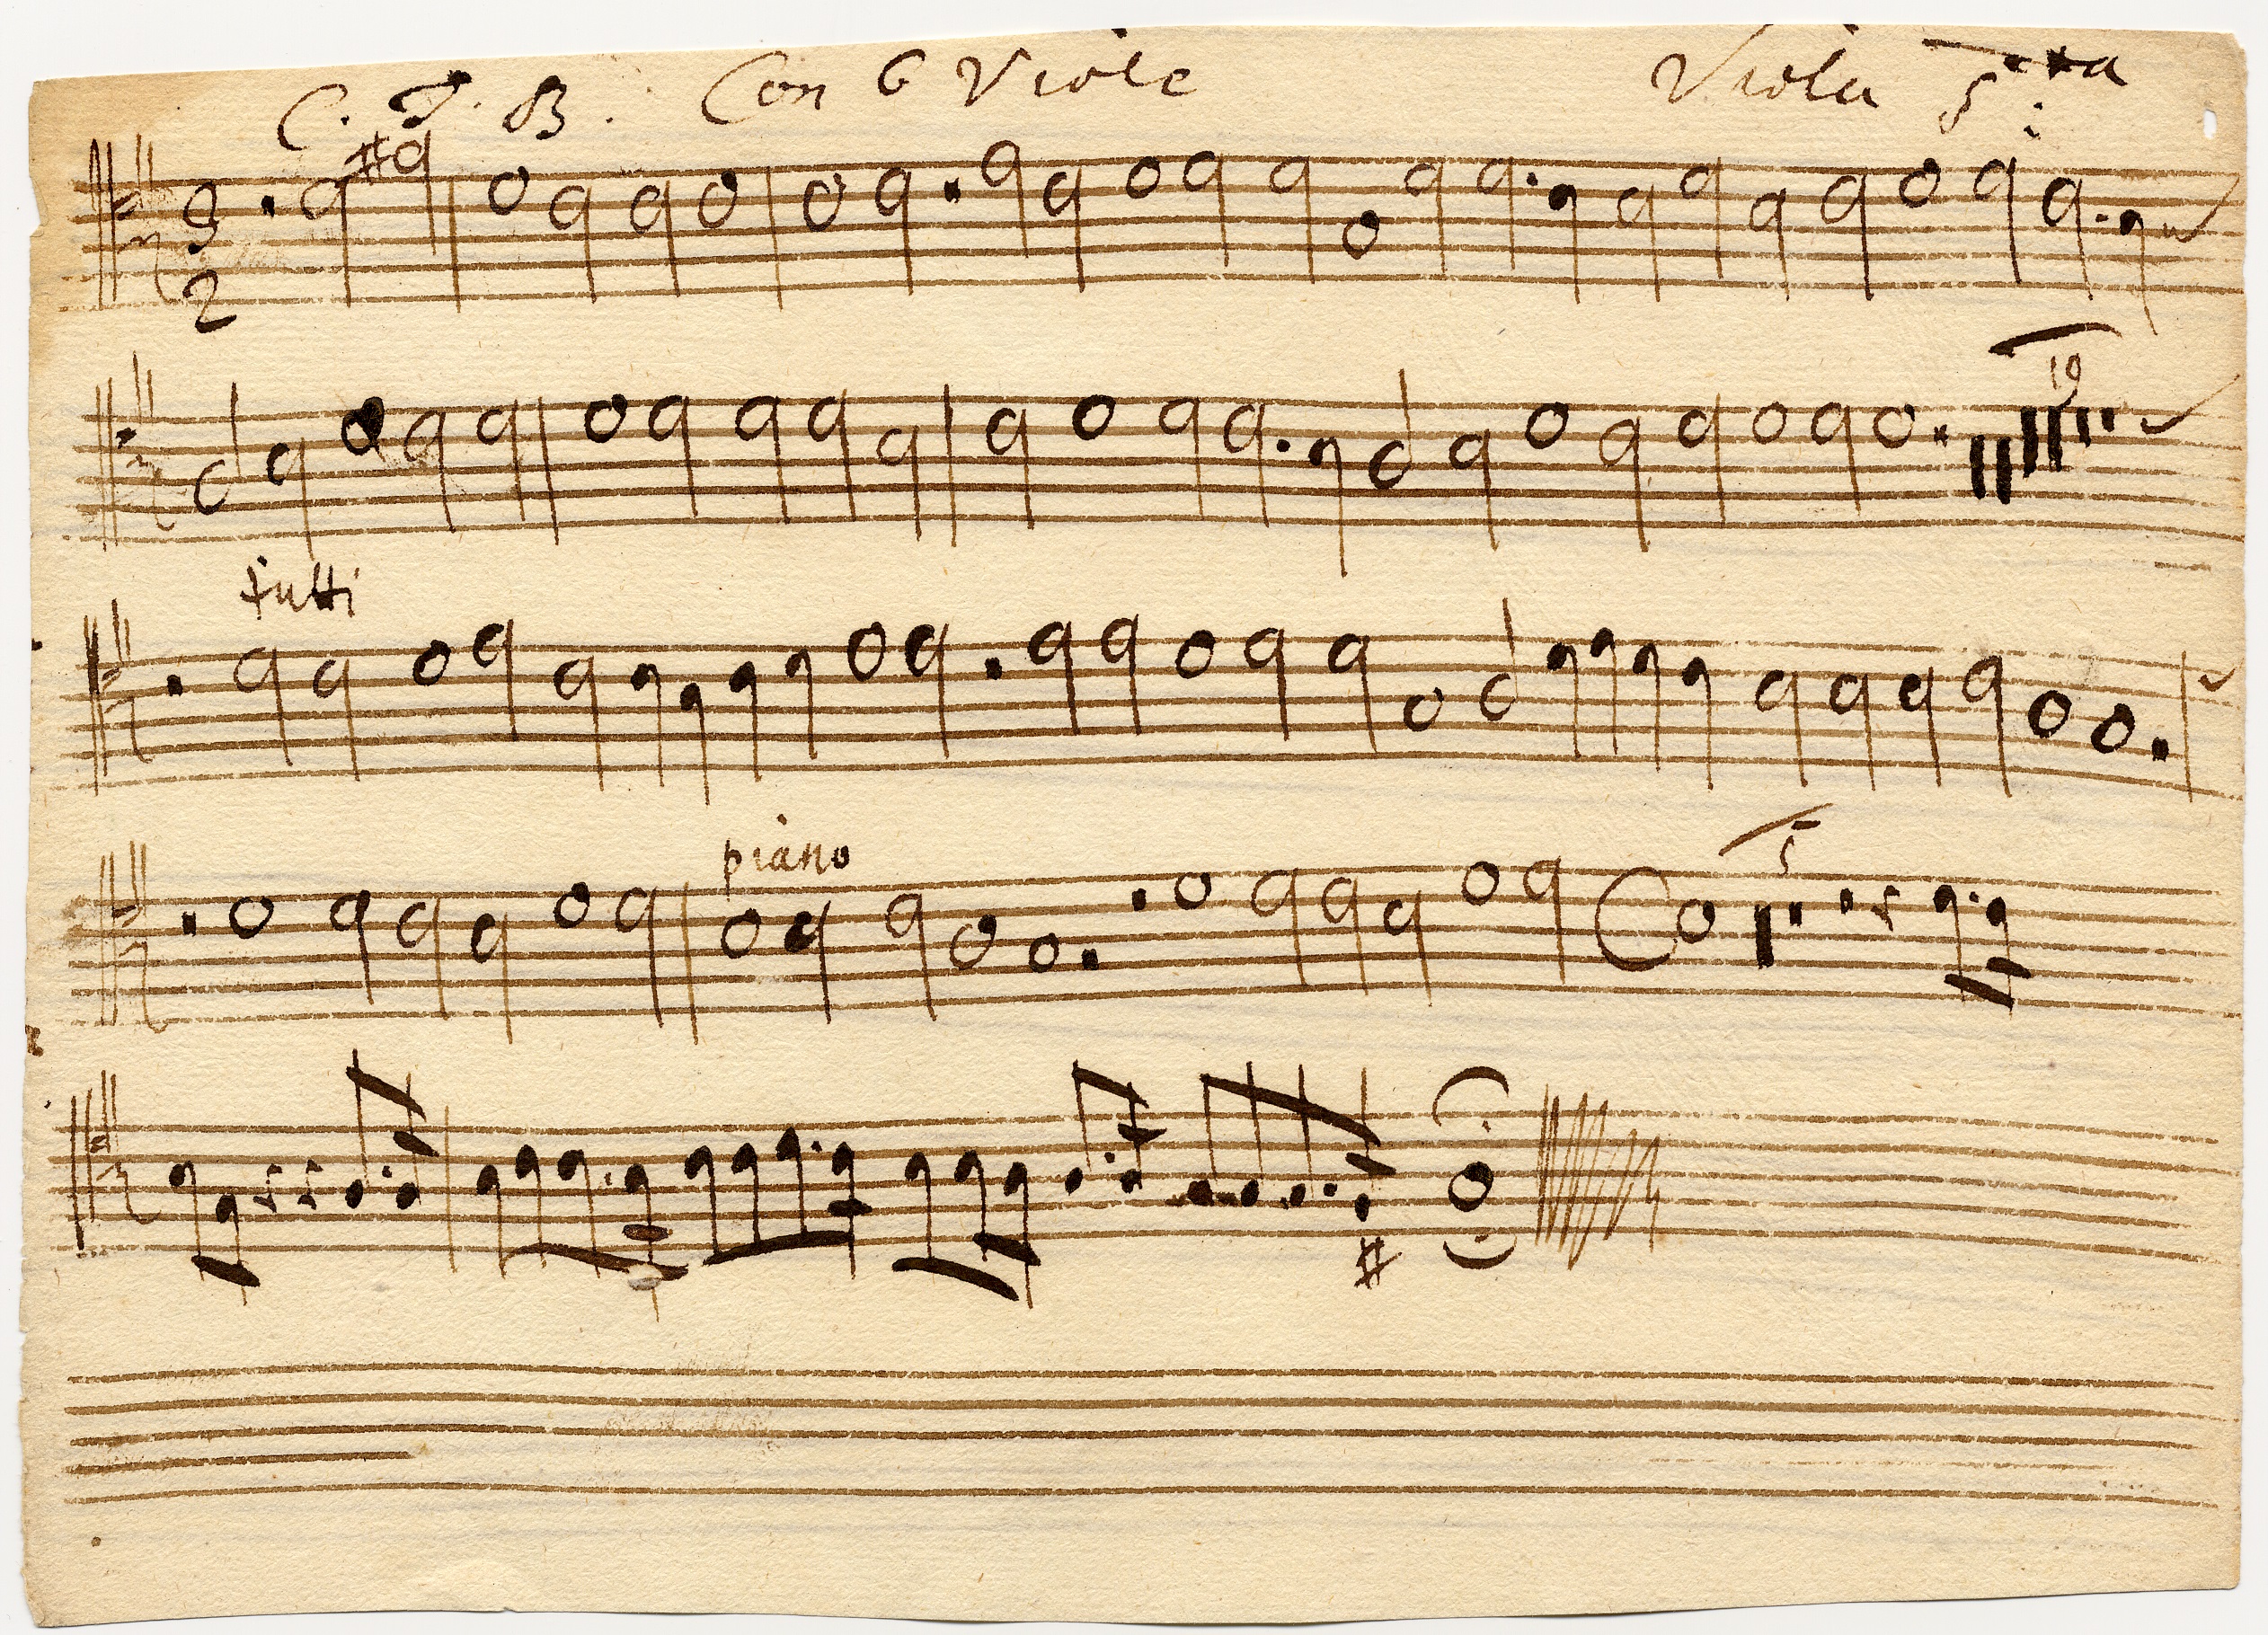 C. T. B. Con 6 Viole Viola 5:ta
3
2
19
tutti
piano
5